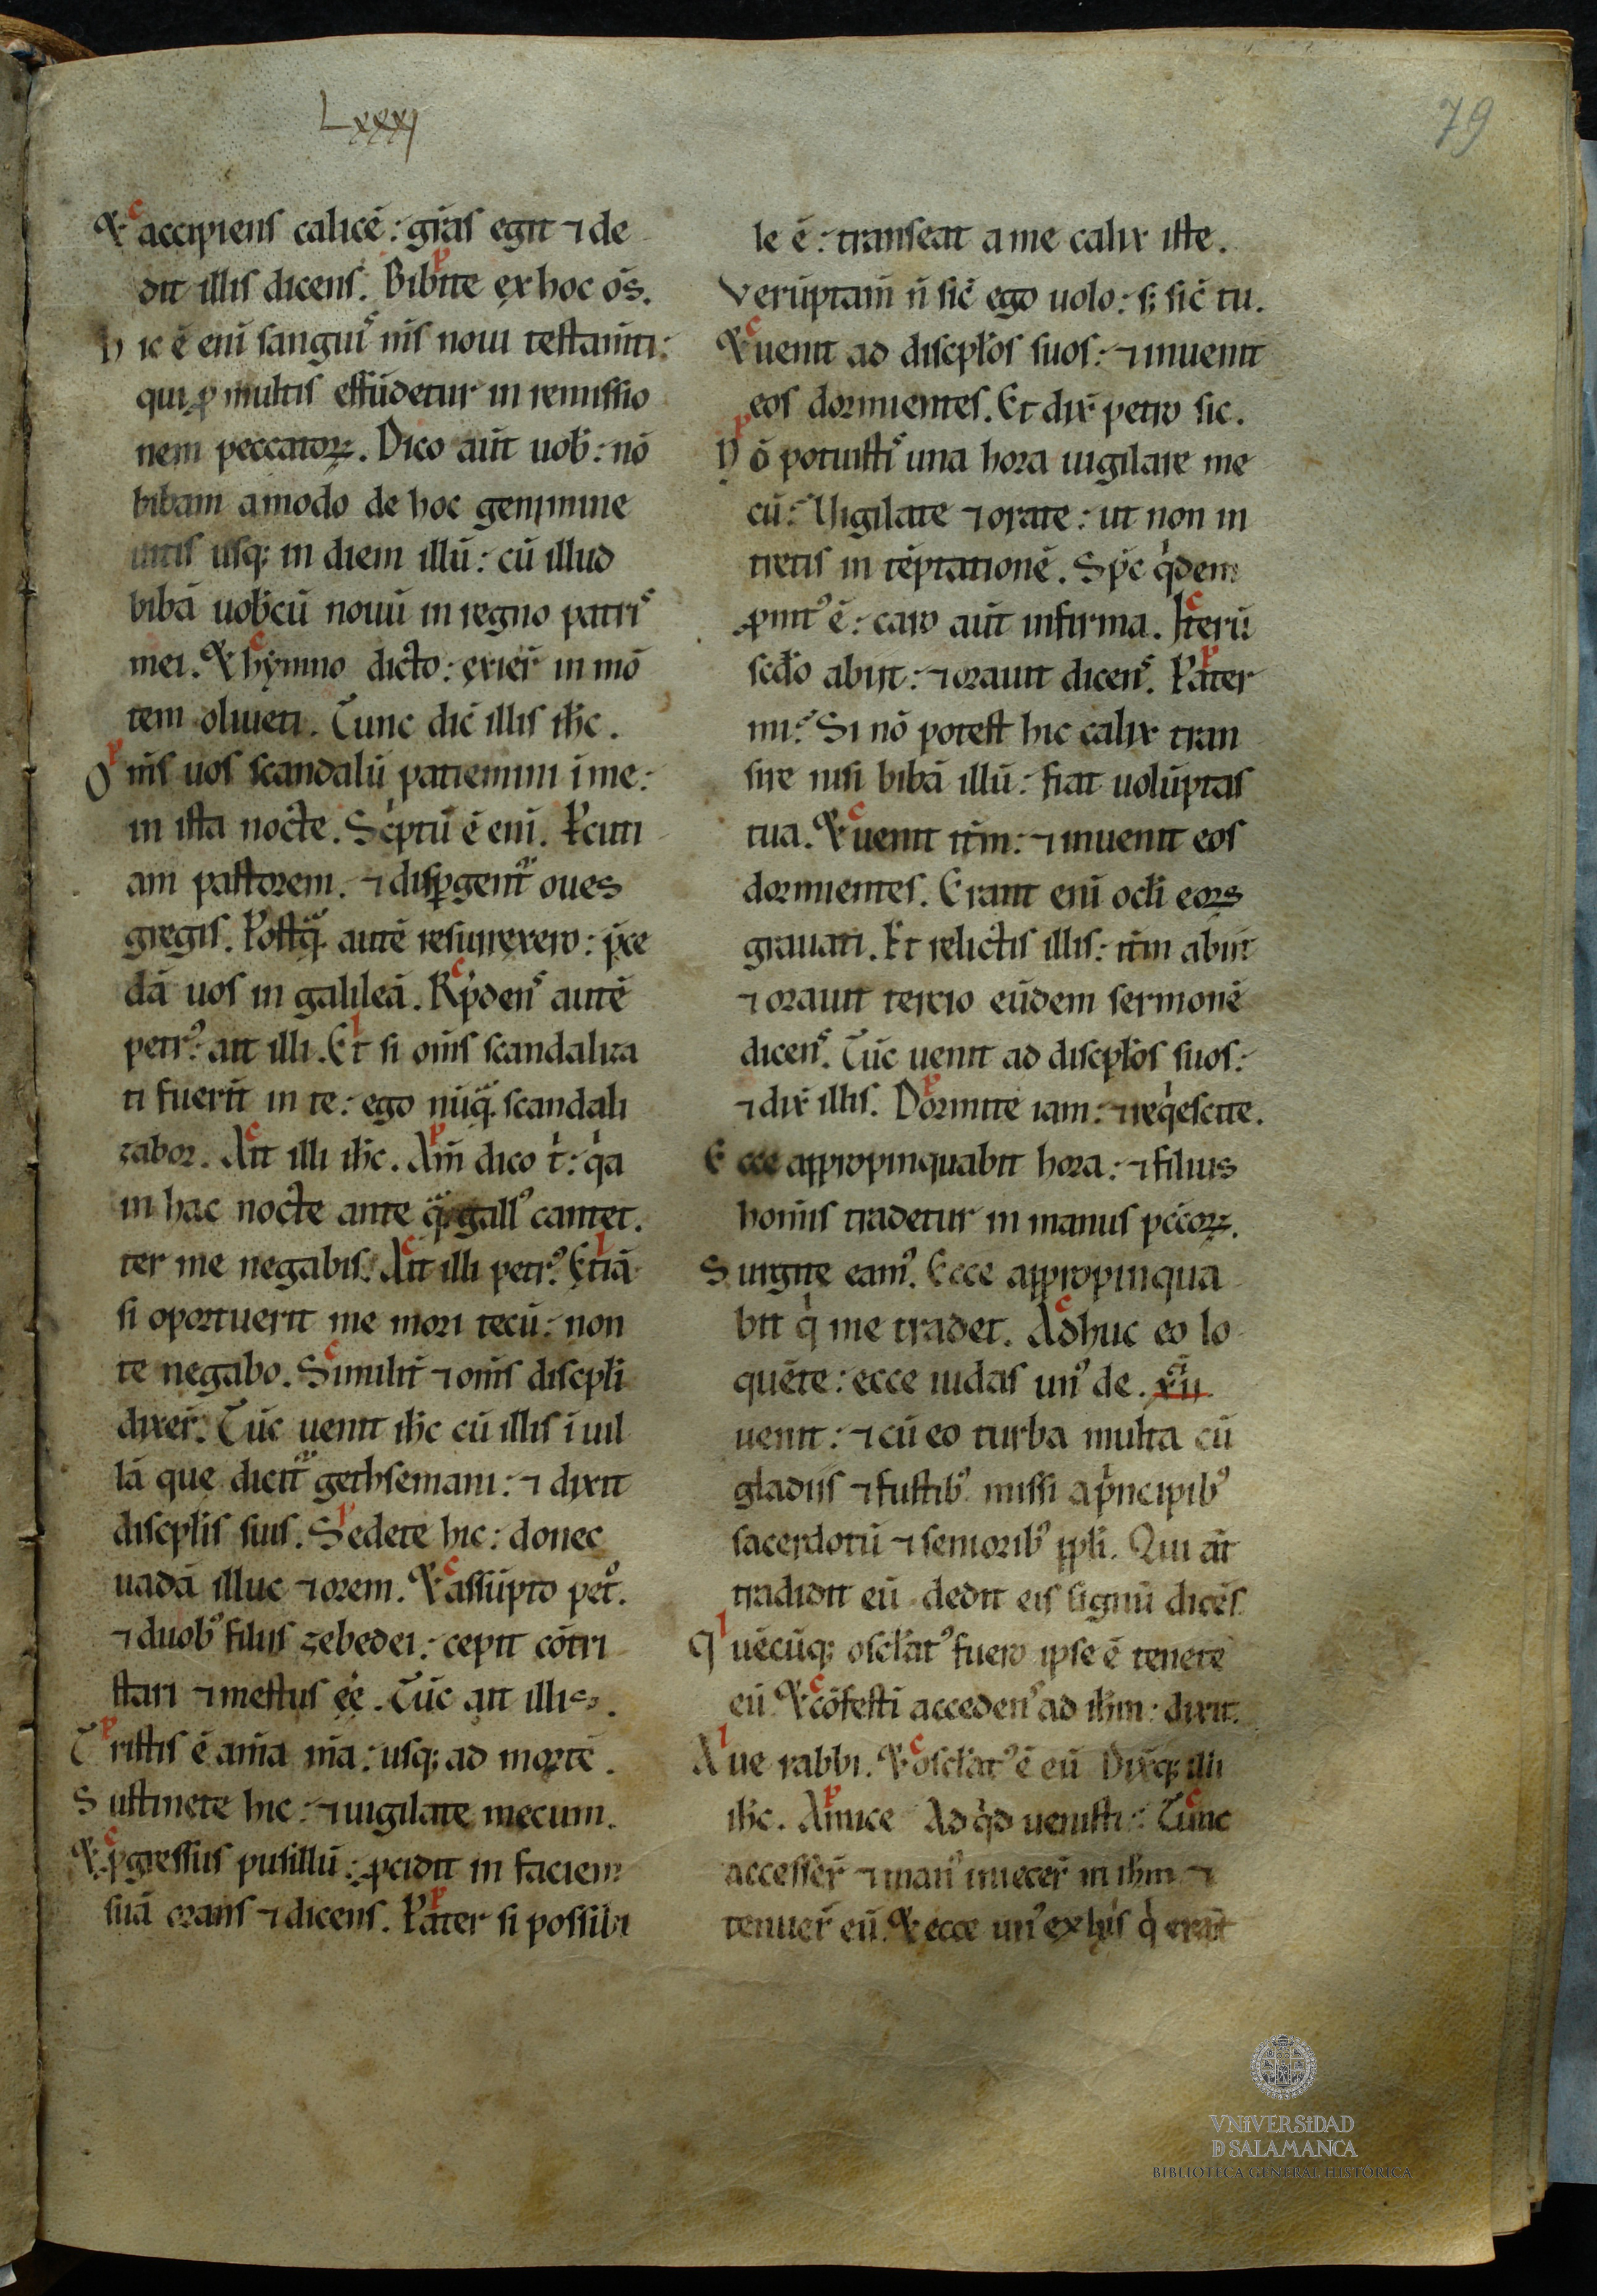 Lxxxj
79
Et accipiens calicē: gr̄as egit ⁊ de
dit illis dicens. Bibite ex hoc om̄s.
Hic ē eni sanguis m̄s noui testam̄ti:
qui ꝓ multis effūdetur in remissio
nem peccatoꝝ. Dico aūt uob̄: nō
bibam amodo de hoc genimine
uitis usqꝫ in diem illū: cū illud
bibā uob̄cū nouū in regno patris
mei. Et hymno dicto: exier̄ in mō
tem oliueti. Tunc dic̄ illis ih̄c.
Om̄s uos scandalū patiemini ī me:
in ista nocte. Sc̄ptū ē eni. Pcuti
am pastorem. ⁊ disꝑgentᷓ oues
gregis. Postqᷓ autē resurrexero: p̄ce
dā uos in galileā. Rp̄dens autē
petrꝰ: ait illi. Et si om̄s scandaliza
ti fuerīt in te: ego nūqᷓ scandali
zabor. Ait illi ih̄c. Am̄ dico t̄: qa
in hac nocte ante qᷓ gallꝰ cantet.
ter me negabis. Ait illi petrꝰ. Etiā
si oportuerit me mori tecū: non
te negabo. Similit̄ ⁊ om̄s discpl̄i
dixer̄. Tūc uenit ih̄c cū illis ī uil
lā que dicitᷓ gethsemani: ⁊ dixit
discpl̄is suis. Sedete hic: donec
uadā illuc ⁊ orem. Et assūpto petꝰ.
⁊ duobꝰ filiis zebedei: cepit cōtri
stari ⁊ mestus ēē. Tūc ait illis.
Tristis ē anīa m̄a: usqꝫ ad mortē.
Sustinete hic: ⁊ uigilate mecum.
Et ꝓgressus pusillū: ꝓcidit in faciem
suā orans ⁊ dicens. Pater si possibi
le ē: transeat a me calix iste.
Verūptam̄ n̄ sic̄ ego uolo: sꝫ sic̄ tu.
Et uenit ad discpl̄os suos: ⁊ inuenit
eos dormientes. Et dix̄ petro sic.
Nō potuistis una hora uigilare me
cū: Uigilate ⁊ orate: ut non in
tretis in tēptationē. Sp̄c qͥdem
ꝓmtꝰ ē: caro aūt infirma. Iterū
sc̄do abiit: ⁊ orauit dicens. Pater
mi: Si nō potest hic calix tran
sire nisi bibā illū: fiat uolūptas
tua. Et uenit it̄m: ⁊ inuenit eos
dormientes. Erant eni ocl̄i eoꝝ
grauati. Et relictis illis: it̄m abiit
⁊ orauit tercio eūdem sermonē
dicens. Tūc uenit ad discpl̄os suos:
⁊ dix̄ illis. Dormite iam: ⁊ reqͥescite.
Ecce appropinquabit hora: ⁊ filius
homīs tradetur in manus pc̄coꝝ.
Surgite eamꝰ. Ecce appropinqua
bit qͥ me tradet. Adhuc eo lo
quēte: ecce iudas unꝰ de. xii
uenit: ⁊ cū eo turba multa cū
gladiis ⁊ fustibꝰ missi a pͥncipibꝰ
sacerdotū ⁊ senioribꝰ ppl̄i. Qui āt
tradidit eū dedit eis signū dicēs
Quēcūqꝫ oscl̄atꝰ fuero ipse ē tenete
eū Et cōfestī accedens ad ih̄m: dixit.
Aue rabbi. Et oscl̄atꝰ ē eū Dix̄qꝫ illi
ih̄c. Amice Ad qͥd uenisti: Tunc
accesser̄ ⁊ manꝰ iniecer̄ in ih̄m ⁊
tenuer̄ eū. Et ecce unꝰ ex hiis qͥ erāt
VNIVERSIDAD
D SALAMANCA
BIBLIOTECA GENERAL HISTÓRICA